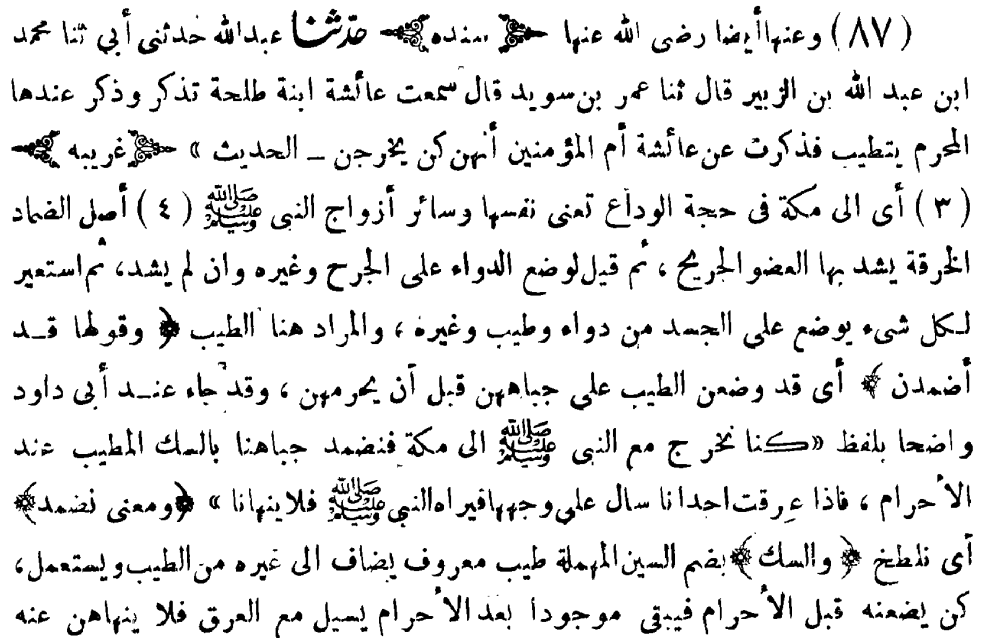 (٨٧) وعنها أيضا رضى الله عنها ﴿سنده﴾ حدثنا عبدالله حدثنى أبي ثنا محمد
ابن عبد الله بن الزبير قال ثنا عمر بن سويد قال سمعت عائشة ابنة طلحة تذكر وذكر عندها
المحرم يتطيب فذكرت عن عائشة أم المؤمنين أنهن كن يخرجن ــ الحديث » ﴿غريبه﴾
(٣) أى الى مكة فى حجة الوداع تعنى نفسها وسائر أزواج النبى ﷺ (٤) أصل الضماد
الخرقة يشد بها العضو الجريح ، ثم قيل لوضع الدواء على الجرح وغيره وان لم يشد، ثم استعير
لكل شىء يوضع على الجسد من دواء وطيب وغيره ، والمراد هنا الطيب ﴿ وقولها قد
أضمدن ﴾ أى قد وضعن الطيب على جباههن قبل أن يحرمهن ، وقد جاء عند أبى داود
واضحا بلفظ «كنا نخرج مع النبى ﷺ الى مكة فنضمد جباهنا بالسك المطيب عند
الأحرام ، فاذا عرقت احدانا سال على وجهها فيراه النبى ﷺ فلا ينهانا » ﴿ومعنى نضمد﴾
أى نلطخ ﴿ والسك ﴾ بضم السين المهملة طيب معروف يضاف الى غيره من الطيب ويستعمل،
كن يضعنه قبل الأحرام فيبقى موجودا بعد الأحرام يسيل مع العرق فلا ينهاهن عنه